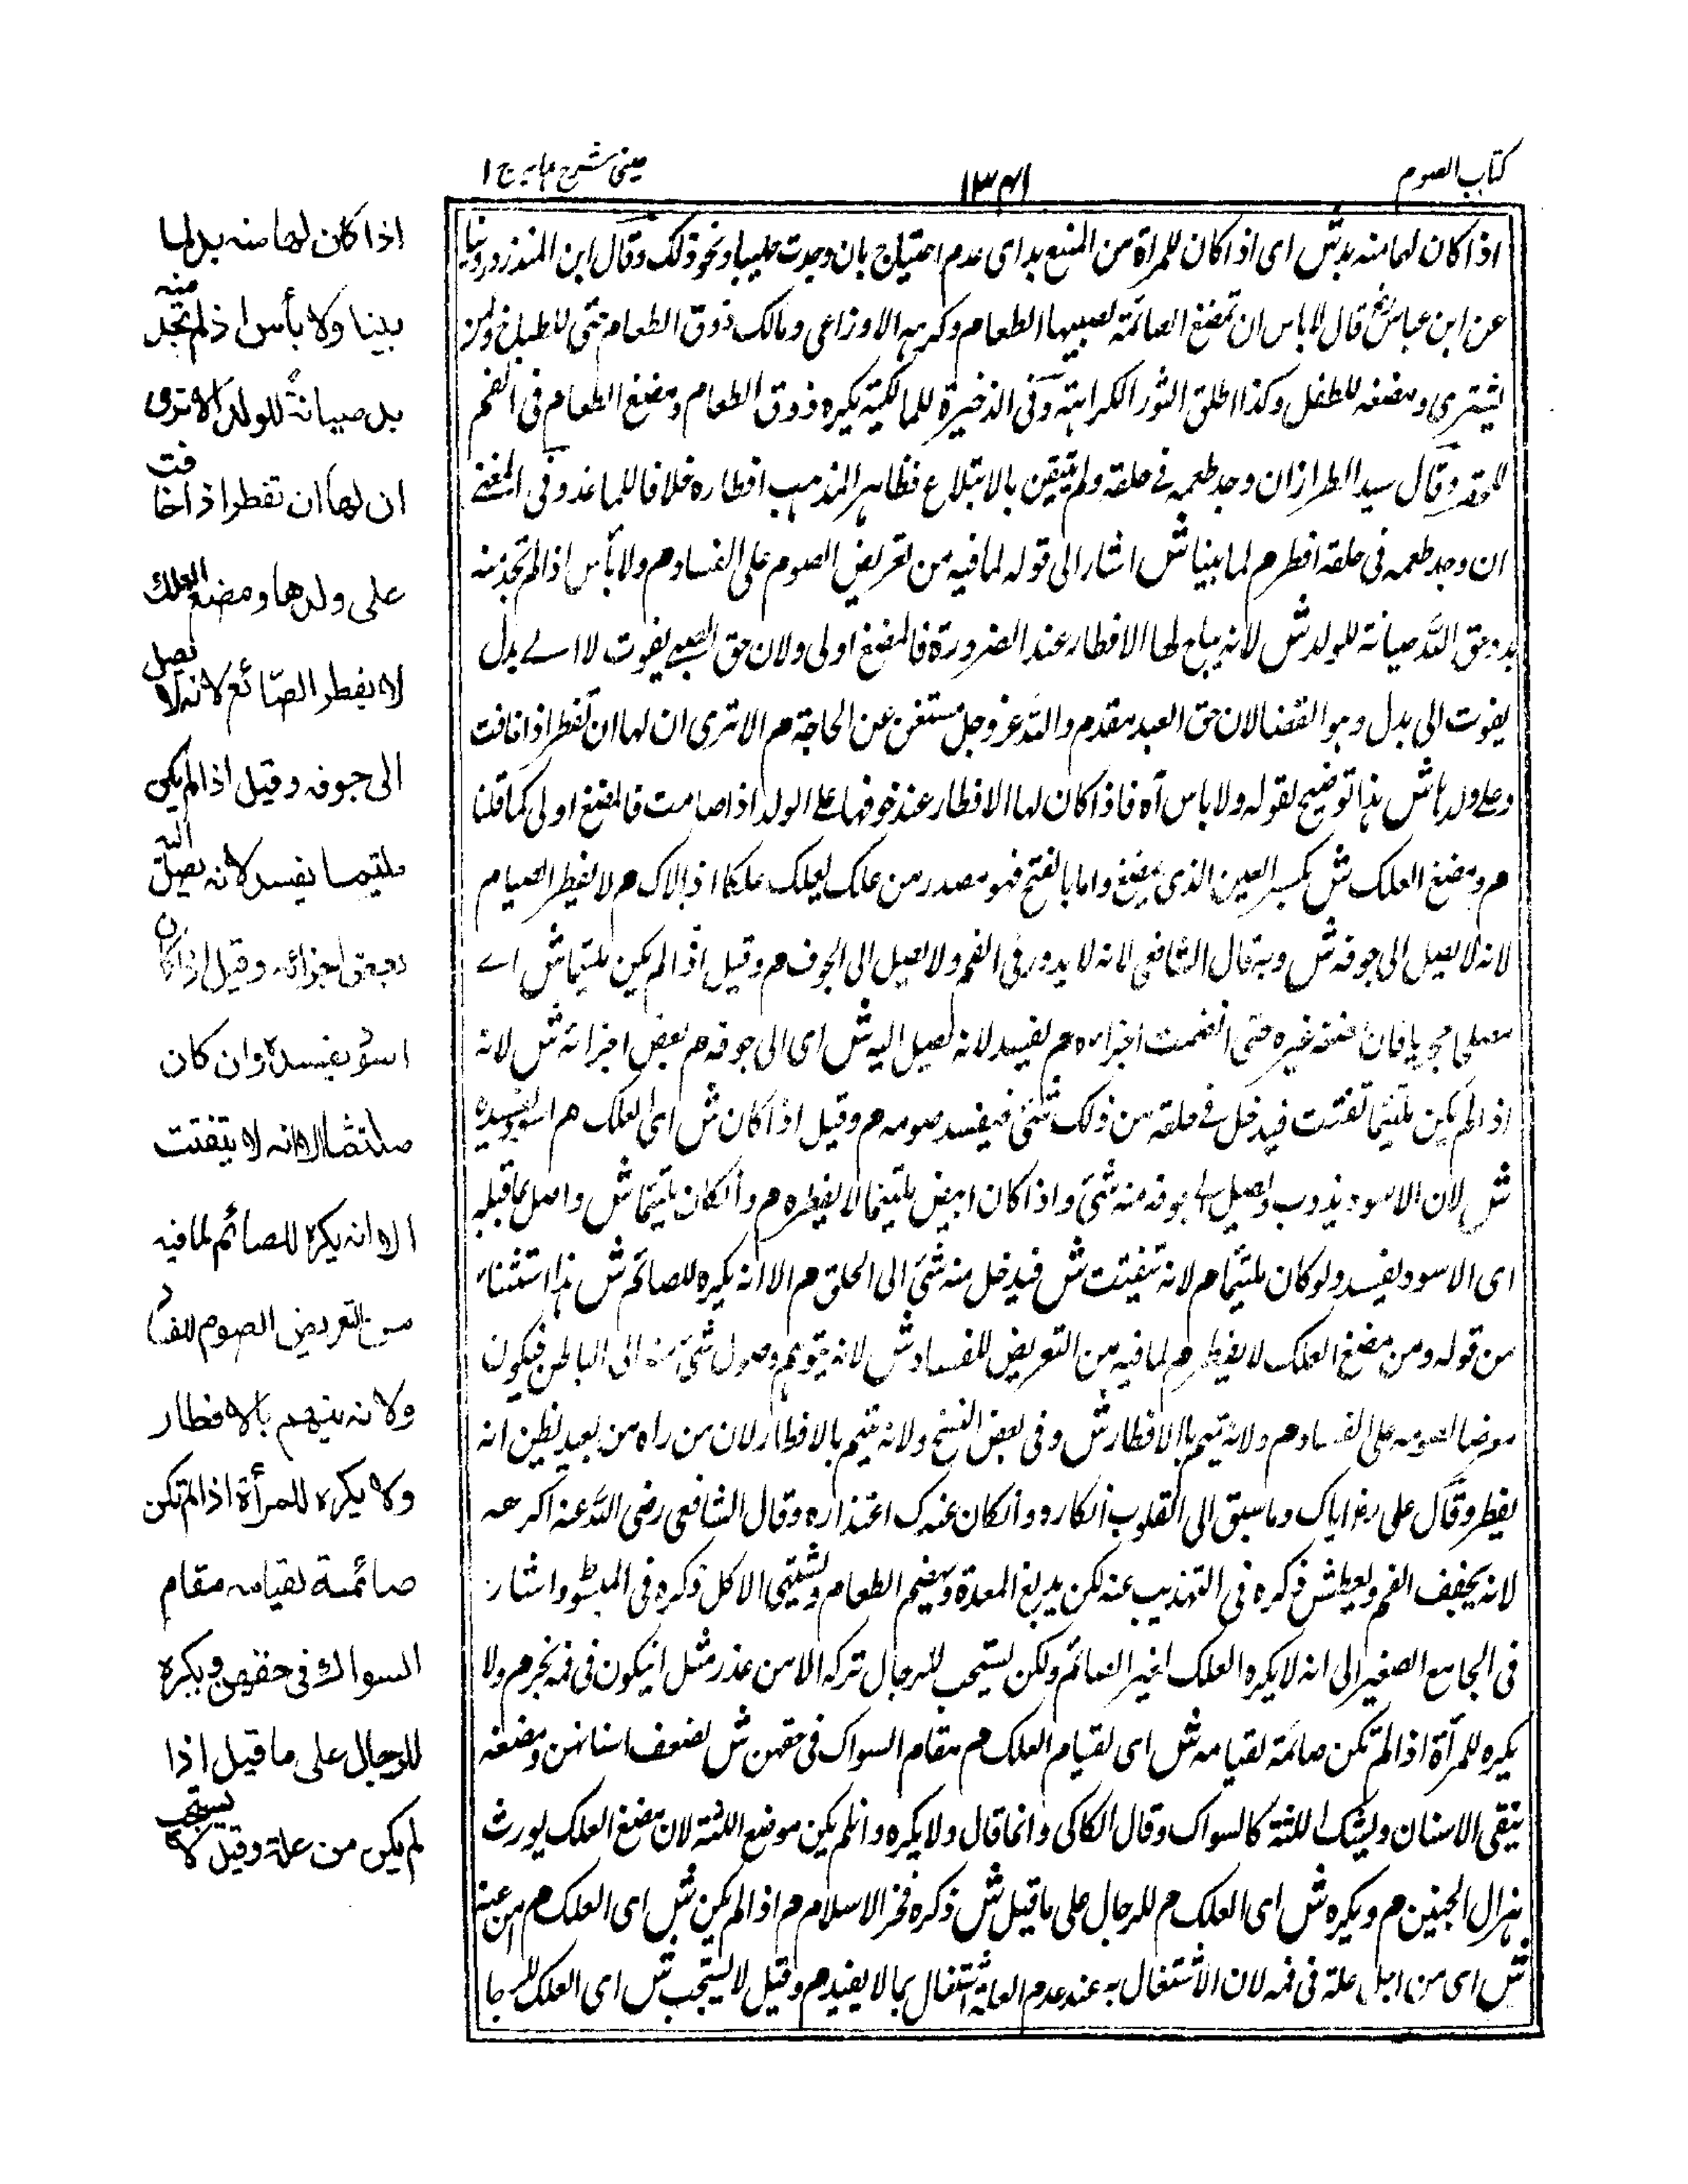 كتاب الصوم
١٣٤١
عينى شرح هدايه ج ١
اذا كان لها منه بد ش اى اذا كان للمراة من المضغ بد اى عدم احتياج بان وجدت حليبا ونحو ذلك وقال ابن المنذر وروينا
عن ابن عباس رض قال لا باس ان تمضغ الصائمة لصبيها الطعام وكرهه الاوزاعى ومالك ذوق الطعام حتى للطباخ ولمن
يشترى ومضغه للطفل وكذا اطلق الثورى الكراهة وفى الذخيرة للمالكية يكره ذوق الطعام ومضغ الطعام فى الفم
وقال سيد الطراز ان وجد طعمه فے حلقه ولم يتيقن بالابتلاع فظاهر المذهب افطاره خلافا وفى المغنے
ان وجد طعمه فى حلقه افطر م لما بينا ش اشار الى قوله لما فيه من تعريض الصوم على الفساد م ولا بأس اذا لم تجد منه
بد وحق الله صيانة للولد ش لانه يباح لها الافطار عند الضرورة فالمضغ اولى ولان حق الصبے يفوت لا الے بدل
يفوت الى بدل وهو القضا لان حق العبد مقدم والله عز وجل مستغن عن الحاجة م الا ترى ان لها ان تفطر اذا خافت
وعلے ولدها ش هذا توضيح لقوله ولا باس آه فاذا كان لها الافطار عند خوفها علے الولد اذا صامت فالمضغ اولى كما قلنا
م ومضغ العلك ش بكسر العين الذى يمضغ واما بالفتح فهو مصدر من علك يعلك علكا اذا لاك م لا يفطر الصيام
لانه لا يصل الى جوفه ش وبه قال الشافعى لانه لا يدور فى الفم ولا يصل الى الجوف م وقيل اذا لم يكن ملتيما ش اے
فان مضغه غيره حتى انضمت اجزاءه م يفسد لانه يصل اليه ش اى الى جوفه م بعض اجزائه ش لانه
اذا لم يكن ملتيما تفتت فيدخل فے حلقه من ذلك شئ فيفسد صومه م وقيل اذا كان ش اى العلك م اسود يفسده
ش لان الاسود يذوب ويصل الے جوفه منه شئ واذا كان ابيض ملتيما لا يفطره م وانكان ملتيما ش واصل بما قبله
اى الاسود يفسد ولو كان ملتيما م لانه يتفتت ش فيدخل منه شئ الى الحلق م الا انه يكره للصائم ش هذا استثناء
من قوله ومن مضغ العلك لا يفطر م لما فيه من التعريض للفساد ش لانه يتوهم وصول شئ منه الى الباطن فيكون
معرضا لصومه على الفساد م ولانه يتهم بالافطار ش وفى بعض النسخ ولانه يتهم بالافطار لان من راه من بعيد يظن انه
يفطر وقال على رض اياك وما سبق الى القلوب انكاره وانكان عندك اعتذاره وقال الشافعى رضى الله عنه اكرهه
لانه يجفف الفم ويعطش ذكره فى التهذيب عنه لكن يدبغ المعدة ويهضم الطعام ويشتهى الاكل ذكره فى المبسوط واشار
فى الجامع الصغير الى انه لا يكره العلك لغير الصائم ولكن يستحب للرجال تركه الا من عذر مثل ان يكون فى فمه بخر م ولا
يكره للمرأة اذا لم تكن صائمة لقيامه ش اى لقيام العلك م مقام السواك فى حقهن ش لضعف اسنانهن ومضغه
ينقى الاسنان ويشد اللثة كالسواك وقال الكاكى وانما قال ولا يكره وان لم يكن موضع اللثة لان مضغ العلك يورث
هزال الجنبين م ويكره ش اى العلك م للرجال على ما قيل ش ذكره فخر الاسلام م اذا لم يكن ش اى العلك م من علة
ش اى من اجل علة فى فمه لان الاشتغال به عند عدم العلة اشتغال بما لا يفيد م وقيل لا يستحب ش اى العلك للرجا
اذا كان لها منه بد لما
بينا ولا بأس اذا لم تجد منه
بد صيانة للولد الا ترى
ان لها ان تفطر اذا خافت
على ولدها ومضغ العلك
لا يفطر الصائم لانه لا يصل
الى جوفه وقيل اذا لم يكن
ملتيما يفسد لانه يصل اليه
بعض اجزائه وقيل اذا كان
اسود يفسده وان كان
ملتئما لانه يتفتت
الا انه يكره للصائم لما فيه
من التعريض الصوم للفساد
ولانه يتهم بالافطار
ولا يكره للمرأة اذا لم تكن
صائمة لقيامه مقام
السواك فى حقهن ويكره
للرجال على ما قيل اذا
لم يكن من علة وقيل لا يستحب